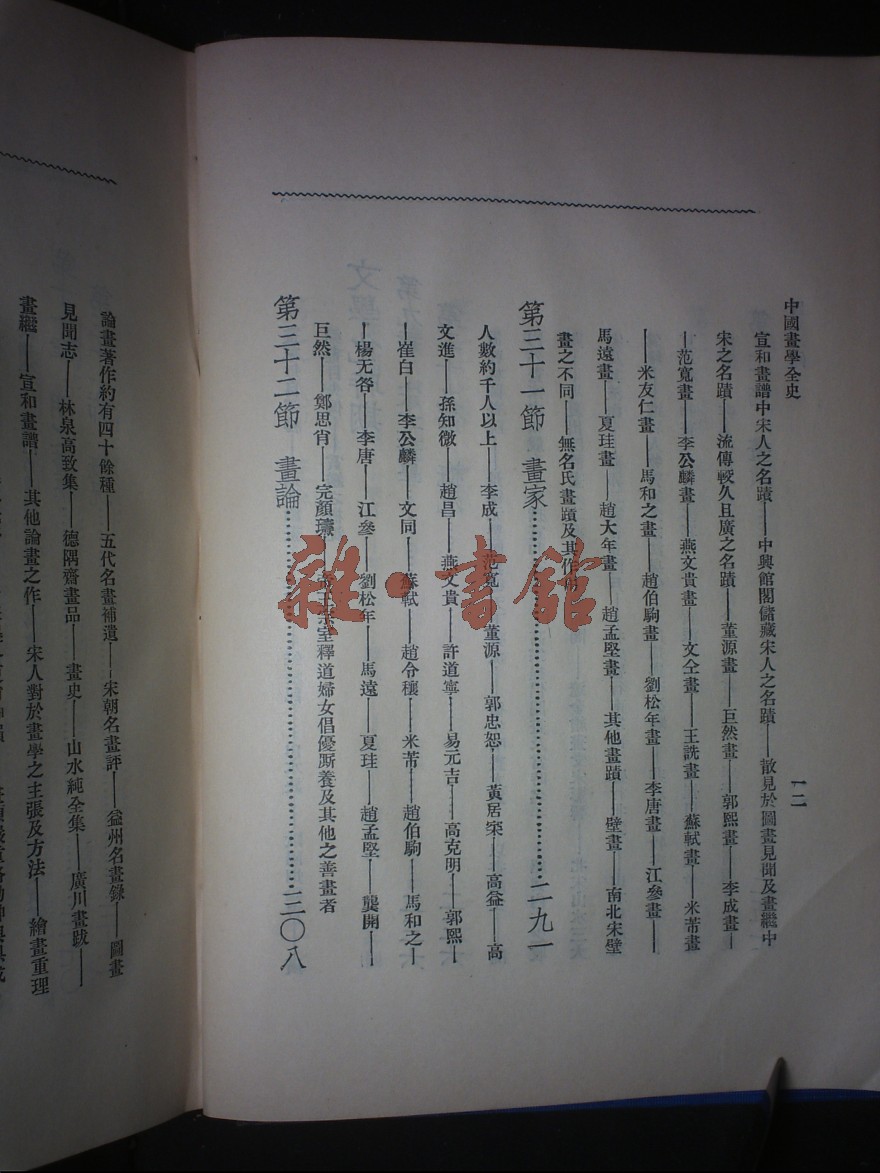 中國畫學全史
一二
宣和畫譜中宋人之名蹟——中興館閣儲藏宋人之名蹟——散見於圖畫見聞及畫繼中
宋之名蹟——流傳較久且廣之名蹟——董源畫——巨然畫——郭熙畫——李成畫—
—范寬畫——李公麟畫——燕文貴畫——文仝畫——王詵畫——蘇軾畫——米芾畫
——米友仁畫——馬和之畫——趙伯駒畫——劉松年畫——李唐畫——江參畫——
馬遠畫——夏珪畫——趙大年畫——趙孟堅畫——其他畫蹟——壁畫——南北宋壁
畫之不同——無名氏畫蹟及其作
第三十一節 畫家…………二九一
人數約千人以上——李成——范寬——董源——郭忠恕——黃居寀——高益——高
文進——孫知微——趙昌——燕文貴——許道寧——易元吉——高克明——郭熙—
—崔白——李公麟——文同——蘇軾——趙令穰——米芾——趙伯駒——馬和之—
—楊无咎——李唐——江參——劉松年——馬遠——夏珪——趙孟堅——龔開——
巨然——鄭思肖——完顏璹——宗室釋道婦女倡優廝養及其他之善畫者
第三十二節 畫論…………三〇八
論畫著作約有四十餘種——五代名畫補遺——宋朝名畫評——益州名畫錄——圖畫
見聞志——林泉高致集——德隅齋畫品——畫史——山水純全集——廣川畫跋——
畫繼——宣和畫譜——其他論畫之作——宋人對於畫學之主張及方法——繪畫重理
雜·書館